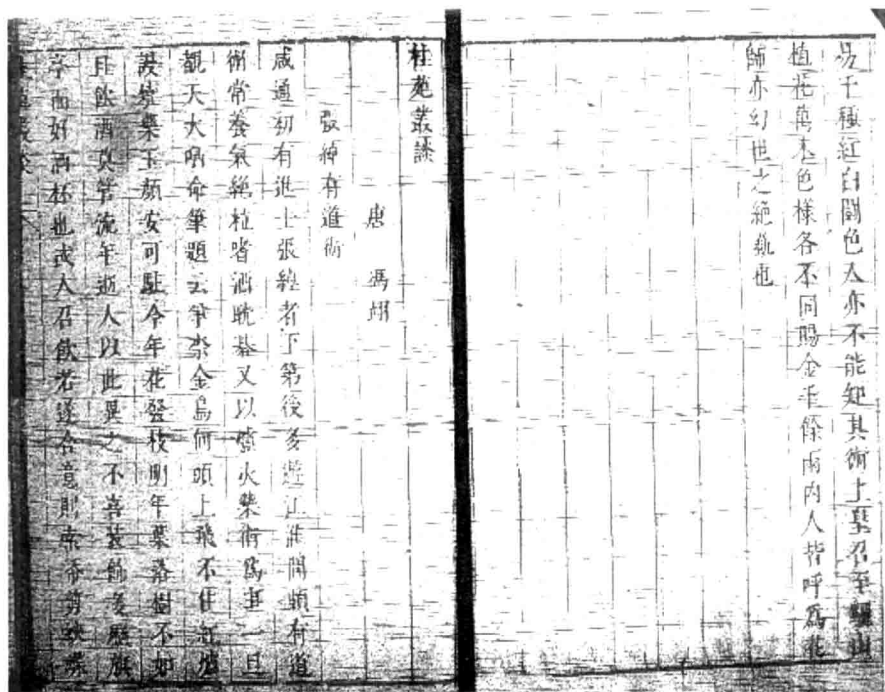 易千種紅白鬪色人亦不能知其術上皇召至驪山
植花萬本色樣各不同賜金千餘兩內人皆呼爲花
師亦幻世之絶藝也
桂苑叢談
唐 馮翊
張綽有道術
咸通初有進士張綽者下第後多遊江淮間頗有道
術常養氣絶粒嗜酒耽棊又以爐火藥術爲事一旦
覩天大哂命筆題云爭奈金烏何頭上飛不住紅爐
謾燒藥玉顏安可駐今年花發枝明年葉落樹不如
且飲酒莫管流年逝人以此異之不喜裝飾多歷旗
亭而好酒杯也或人召飲若遂合意則索紙剪蛺蝶